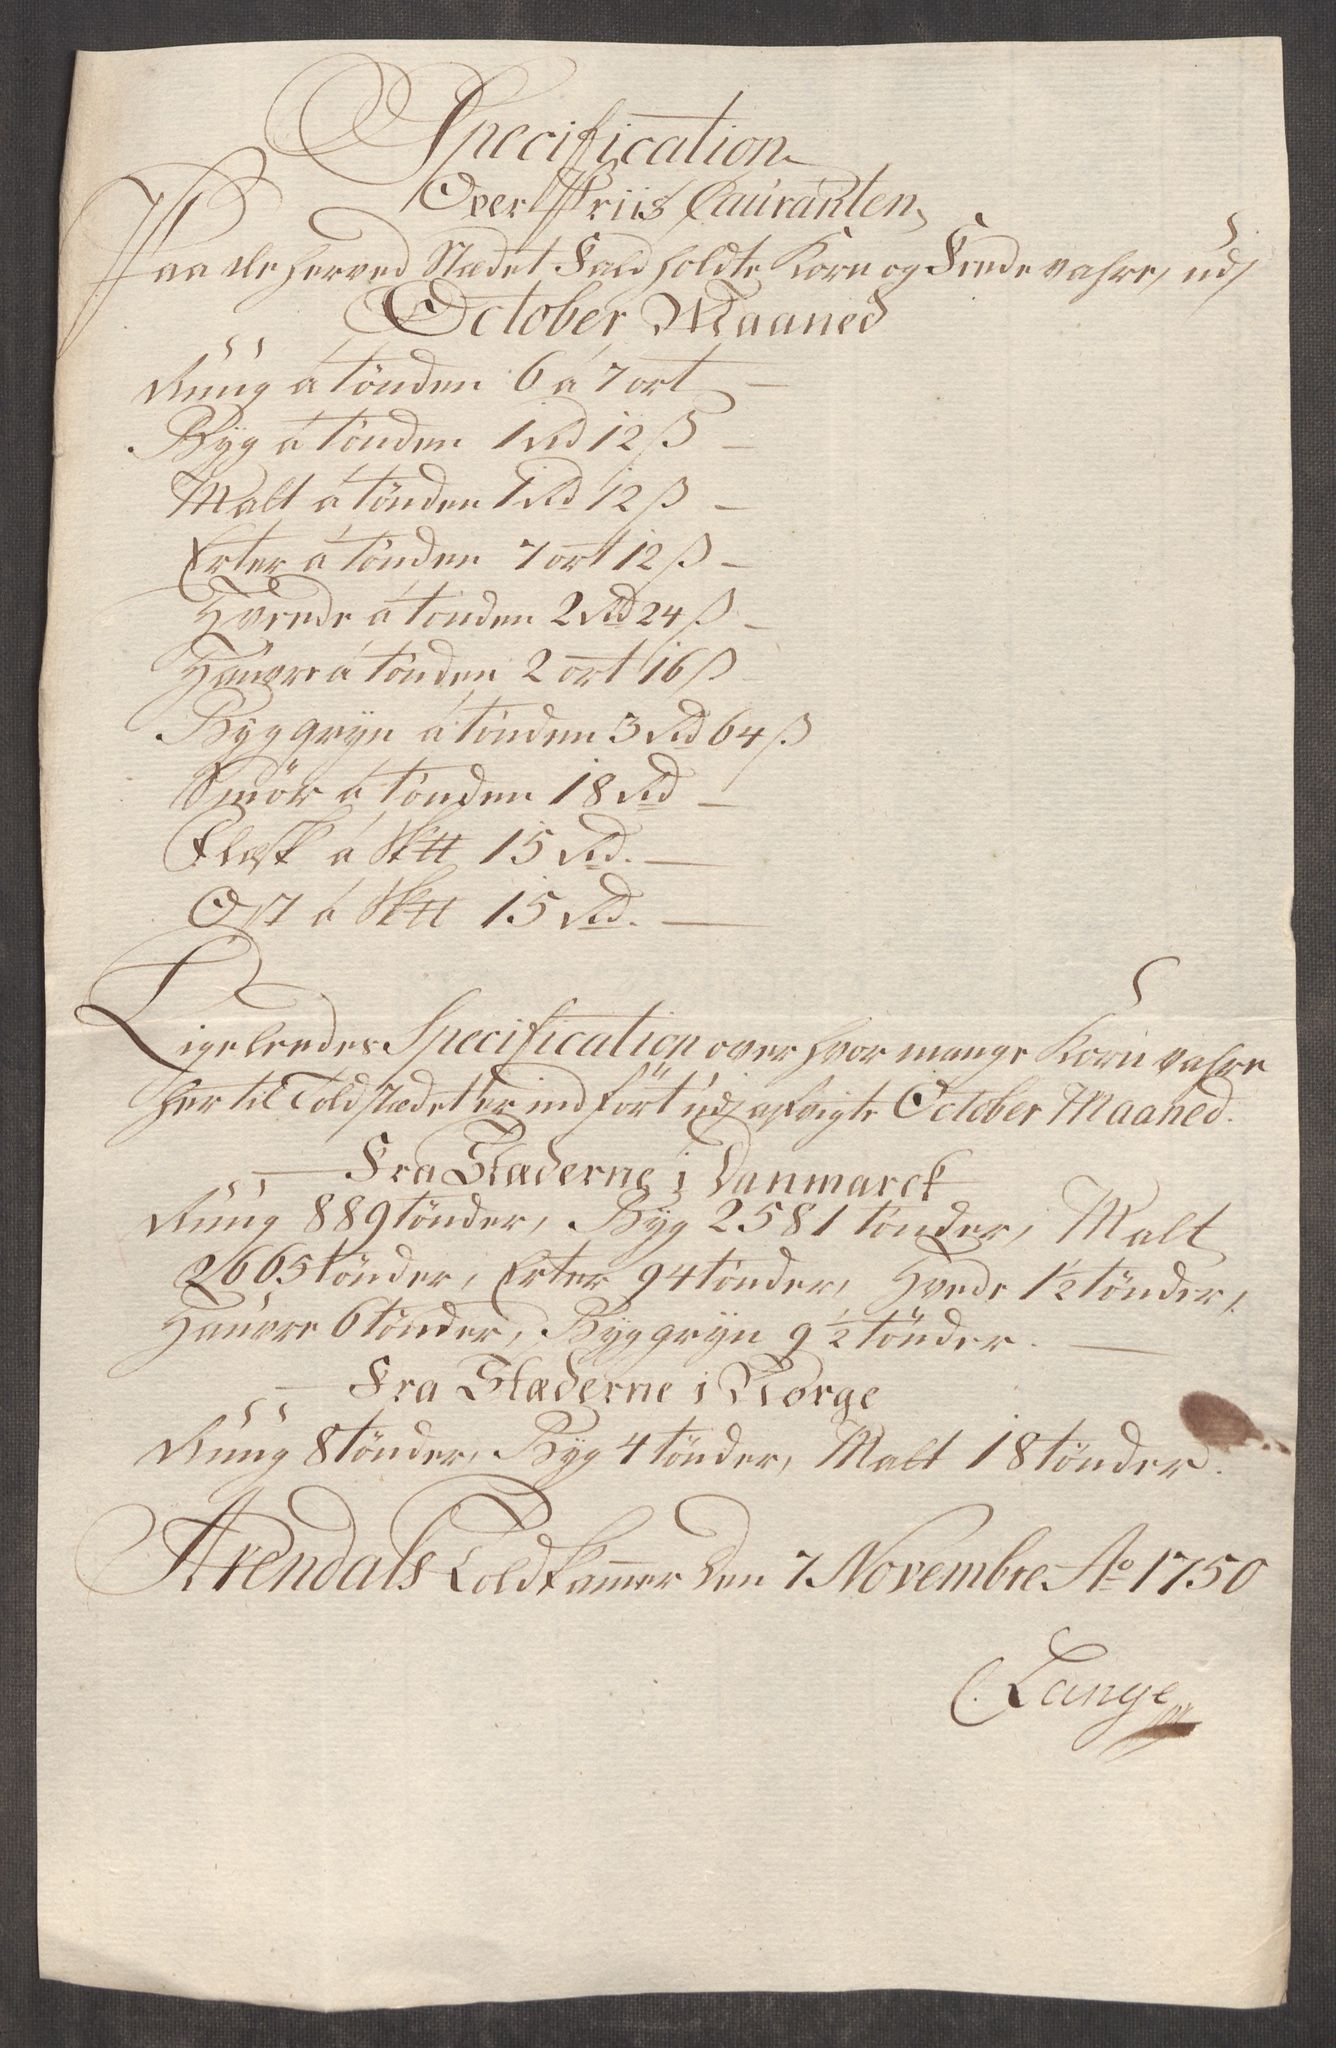 Specification
Over Priis Couranten,
Paa de herved Stædet Fald holdte Korn og Fædevahre, udj
October Maaned
Rüug á tönden 6 á 7 ort —
Byg á tönden 1 Rd 12 ß —
Malt á tönden 1 Rd 12 ß —
Erter á tönden 7 ort 12 ß —
Hvede á tönden 2 Rd 24 ß —
Haure á tönden 2 ort 16 ß
Byggryn á tönden 3 Rd 64 ß
Smör á tönden 18 Rd —
Flesk á Sk℔ 15 Rd. —
Ost á Sk℔ 15 Rd. —
Ligeleedes Specification over hvor mange Korn vahre
her til Toldstædet er indfört udj afvigte October Maaned.
— Fra Stæderne i Danmarck
Rüug 889 tönder, Byg 2581 tönder, Malt
2665 tönder, Erter 94 tönder, Hvede 1½ tönder,
Haure 6 tönder, Byggryn 9½ tönder. —
— Fra Stæderne i Norge
Rüug 8 tönder, Byg 4 tönder, Malt 18 tönder.
Arendals Toldkammer den 7 Novembre Ao 1750
C. Lange